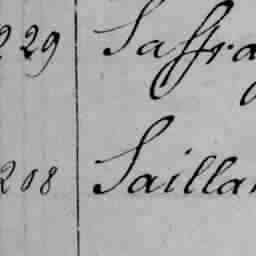 229 Saffra
208 Saillan